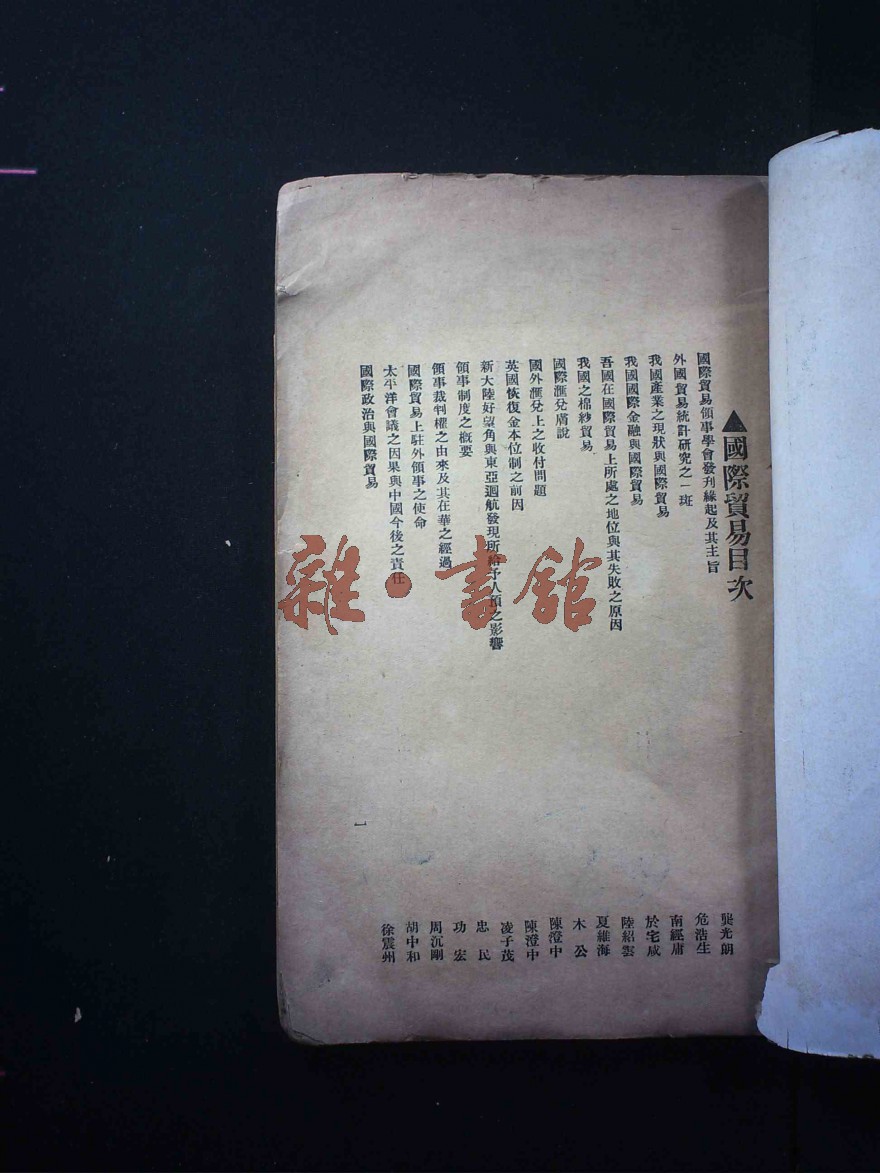 ▲國際貿易目次
國際貿易領事學會發刊緣起及其主旨 龔光朗
外國貿易統計研究之一斑 危浩生
我國產業之現狀與國際貿易 南經庸
我國國際金融與國際貿易 於宅咸
吾國在國際貿易上所處之地位與其失敗之原因 陸紹雲
我國之棉紗貿易 夏維海
國際匯兌膚說 木公
國外匯兌上之收付問題 陳澄中
英國恢復金本位制之前因 陳澄中
新大陸好望角與東亞迴航發現所給予人類之影響 凌子茂
領事制度之概要 忠民
領事裁判權之由來及其在華之經過 功宏
國際貿易上駐外領事之使命 周沉剛
太平洋會議之因果與中國今後之責任 胡中和
國際政治與國際貿易 徐震州
一
雜·書館